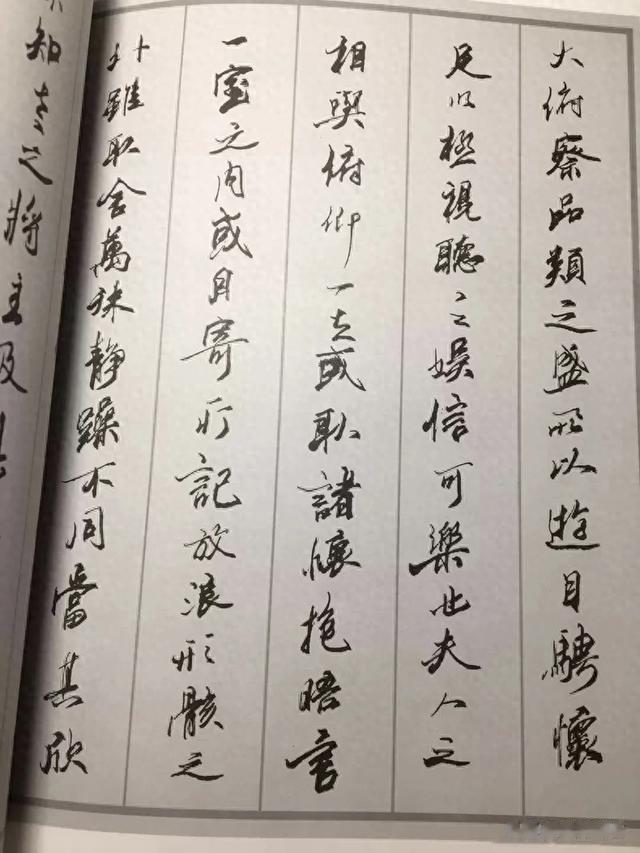 大俯察品類之盛所以遊目騁懷
足以極視聽之娛信可樂也夫人之
相與俯仰一世或取諸懷抱晤言
一室之内或因寄所託放浪形骸之
外雖取舍萬殊静躁不同當其欣
知老之將至及其